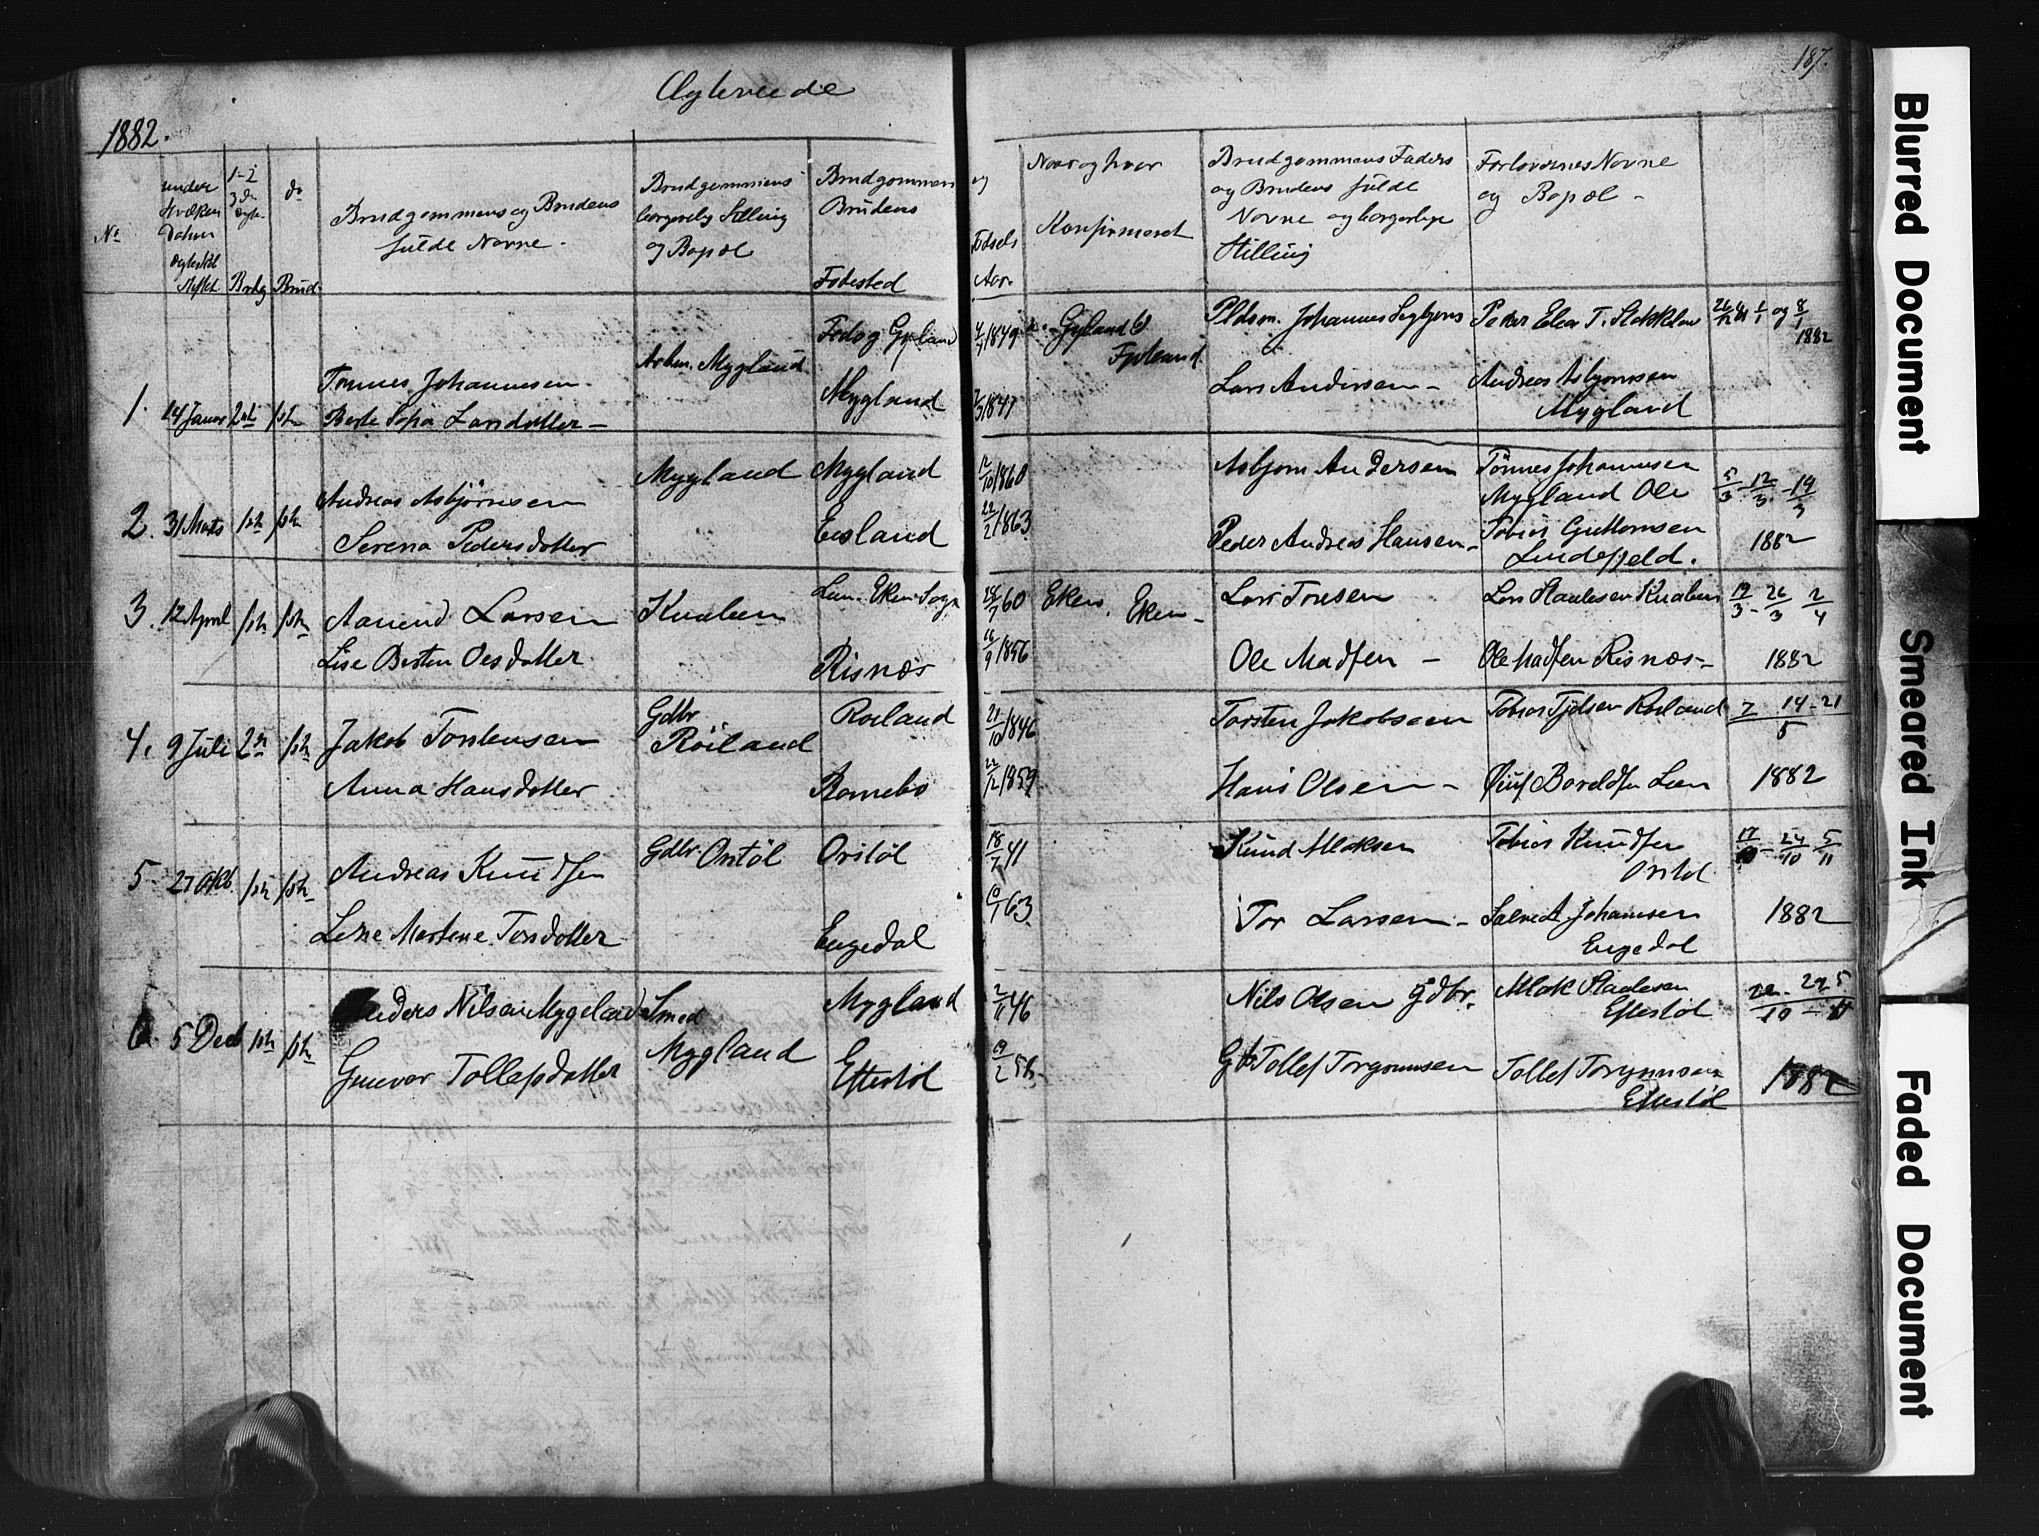 187.
Ægteviede
1882.
No
under
hvilken
Datum
1-2
3 die
do
Brudg
Brud
Brudgommens og Brudens
fulde Navne.
Brudgommens
borgerlig Stilling
og Bopæl
Brudgommens
Brudens
Fødested
og
Fødsels
Aar.
Naar og hvor
Konfirmeret
Brudgommens Faders
og Brudens fulde
Navne og borgerlige
Stilling
Forlovernes Navne
og Bopæl -
1. 14 Januar 2den 1ste
Tønnes Johannesen
Berte Sofia Larsdotter -
Arbm. Mygland
Feda og Gyland
Mygland
1849
1847
Gyland
Pldsm. Johannes
Lars Andersen -
Peder Elear T.
Andreas Asbjornsen
Mygland
26/12 81 1/1 og 8/1
1882
2. 31 Marts 1ste 1ste
Andreas Asbjørnsen
Serena Pedersdotter
Mygland
Mygland
Eesland
12/10 1860
22/2 1863
Asbjorn Andersen
Peder Andreas Hansen -
Tönnes Johannesen
Mygland Ole
Tobias Guttormsen
Lindefjeld.
5/3 - 12/3 - 19/3
1882
3. 12 April 1ste 1ste
Aanend Larsen
Lise Berten Olesdotter
Knaben
Eken Sogn
Risnæs
/7 60
16/9 1856
Eken. Eken -
Lars Tonsen
Ole Madsen -
Lars Staalesen Knaben
Ole Madsen Risnæs -
19/3 - 26/3 2/4
1882
4. 9 Juli 2den 1ste
Jakob Torstensen
Anna Hansdotter
Gdbr
Röiland
Roiland
Romebo
21/10 1846
22/12 1859
Torsten Jakobsen
Hans Olsen -
Tobias Tjolsen Roiland
7 14 - 21
5
1882
5 27 Okb. 1ste 1ste
Andreas Knudsen
Lene Martene Torsdotter
Gdbr Oritöl
Oritöl
Engedal
18/7 41
6/1 63
Knud Aloksen
Tor Larsen -
Tobias Knudsen
Oritol
Salve A Johansen
Engedal
17/10 - 24/10 5/11
1882
6. 5 Decb 1ste 1ste
Anders Nilsen Mygeland
Gunvor Tollefsdatter
Smed
Mygland
Mygland
Eftestöl
2/11 46
19/2 58
Nils Olsen gdbr.
Gb Tollef Torgrimsen
Alok Staalesen
Eftestöl
Tollef Torgrimsen
Eftestöl
22 - 29 5
10 - 11
1882
Blurred Document
Smeared Ink
Faded Document